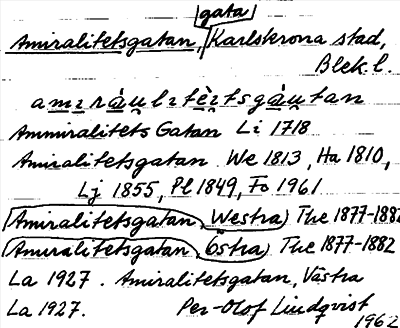 gata
Amiralitetsgatan, Karlskrona stad,
Blek. l.
amɪràu̯lɪtè̯tsgàu̯tan
Ammiralitets Gatan Li 1718
Amiralitetsgatan We 1813, Ha 1810,
Lj 1855, Pl 1849, Fo 1961
Amiralitetsgatan, Westra) The 1877-1882
Amiralitetsgatan, Östra) The 1877-1882
La 1927. Amiralitetsgatan, Västra
La 1927. Per-Olof Lindqvist
1962